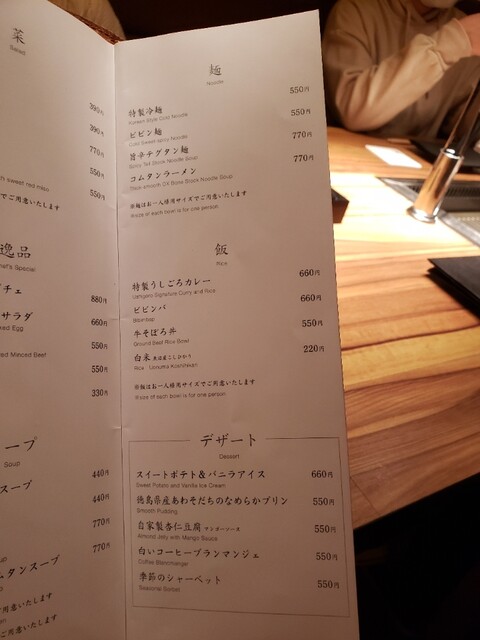 菜
Salad
390円
390円
770円
550円
sweet red miso
ご用意いたします
逸品
Chef's Special
チェ
880円
サラダ
660円
Egg
550円
Minced Beef
550円
330円
ープ
Soup
スープ
440円
440円
770円
770円
ムタンスープ
ご用意いたします
麺
Noodle
特製冷麺
550円
Korean Style Cold Noodle
ビビン麺
550円
Cold Sweet-spicy Noodle
旨辛テグタン麺
770円
Spicy Tail Stock Noodle Soup
コムタンラーメン
770円
Thick smooth OX Bone Stock Noodle Soup
※麺はお一人様用サイズでご用意いたします
※size of each bowl is for one person
飯
Rice
特製うしごろカレー
660円
Ushigoro Signature Curry and Rice
ビビンバ
660円
Bibimbap
牛そぼろ丼
550円
Ground Beef Rice Bowl
白米 魚沼産こしひかり
220円
Rice Uonuma Koshihikari
※麺はお一人様用サイズでご用意いたします
※size of each bowl is for one person
デザート
Dessert
スイートポテト&バニラアイス
660円
Sweet Potato and Vanilla Ice Cream
徳島県産あわそだちのなめらかプリン
550円
Smooth Pudding
自家製杏仁豆腐 マンゴーソース
550円
Almond Jelly with Mango Sauce
白いコーヒーブランマンジェ
550円
Coffee Blancmanger
季節のシャーベット
550円
Seasonal Sorbet